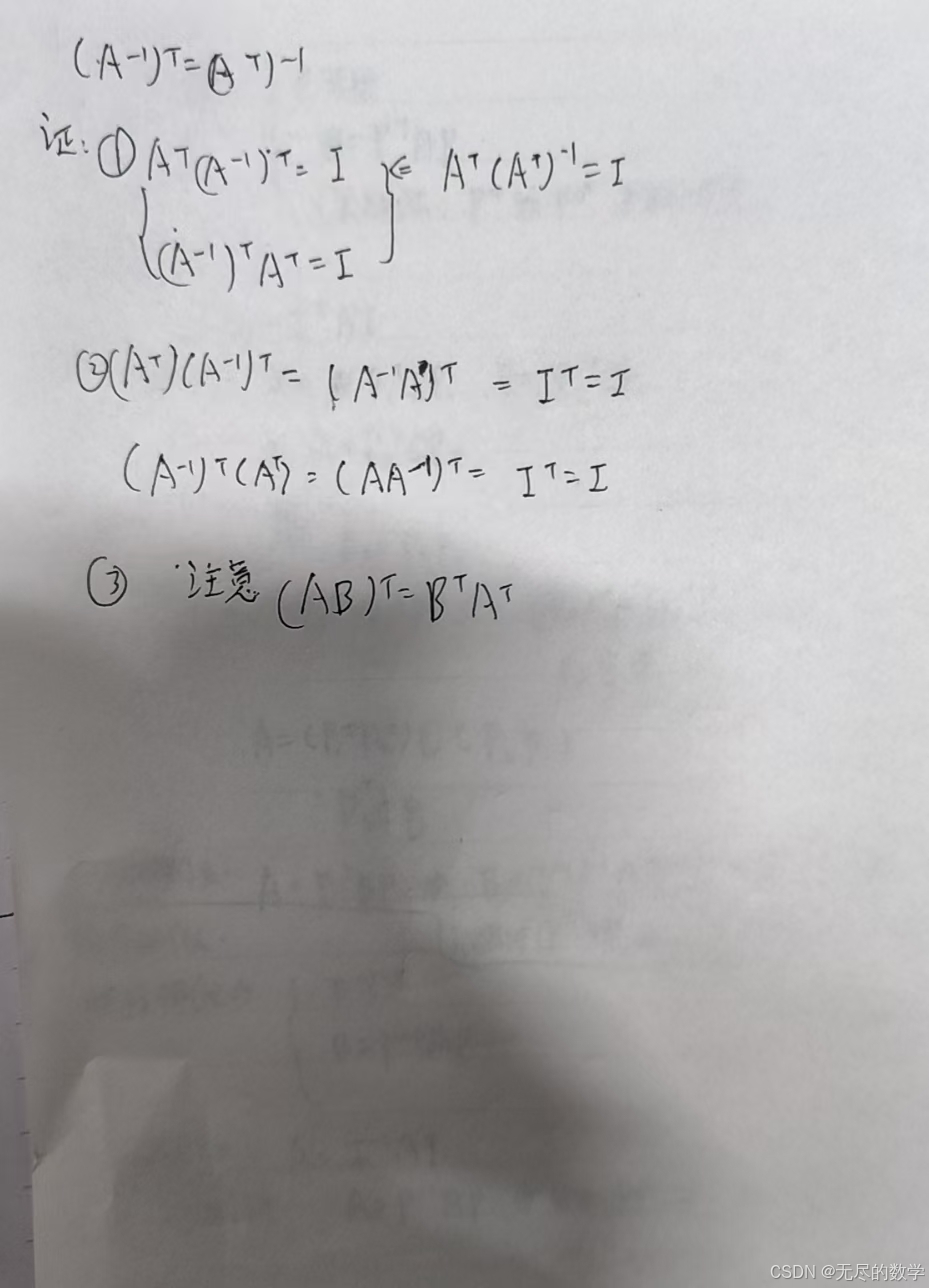 (A⁻¹)ᵀ=(Aᵀ)-1
证:① Aᵀ(A⁻¹)ᵀ= I ⇐ Aᵀ(Aᵀ)⁻¹=I
(A⁻¹)ᵀAᵀ=I
②(Aᵀ)(A⁻¹)ᵀ= (A⁻¹A)ᵀ = Iᵀ=I
(A⁻¹)ᵀ(Aᵀ)=(AA⁻¹)ᵀ= Iᵀ=I
③ 注意 (AB)ᵀ=BᵀAᵀ
CSDN @无尽的数学